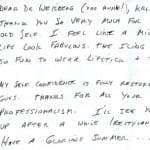 DEAR DR WEINBERG (YOU
THANK YOU SO VERY MUCH FOR
OLD SELF I FEEL LIKE A
LIFE LOOK FABULOUS. THE ICING
SO FUN TO WEAR LIPSTICK &
MY SELF CONFIDENCE IS FULLY
GUYS. THANKS FOR ALL YOUR
PROFESSIONALISM. I'LL SEE
UP AFTER A WHILE (RESTYLANE
HAVE A GLORIOUS SUMMER ...